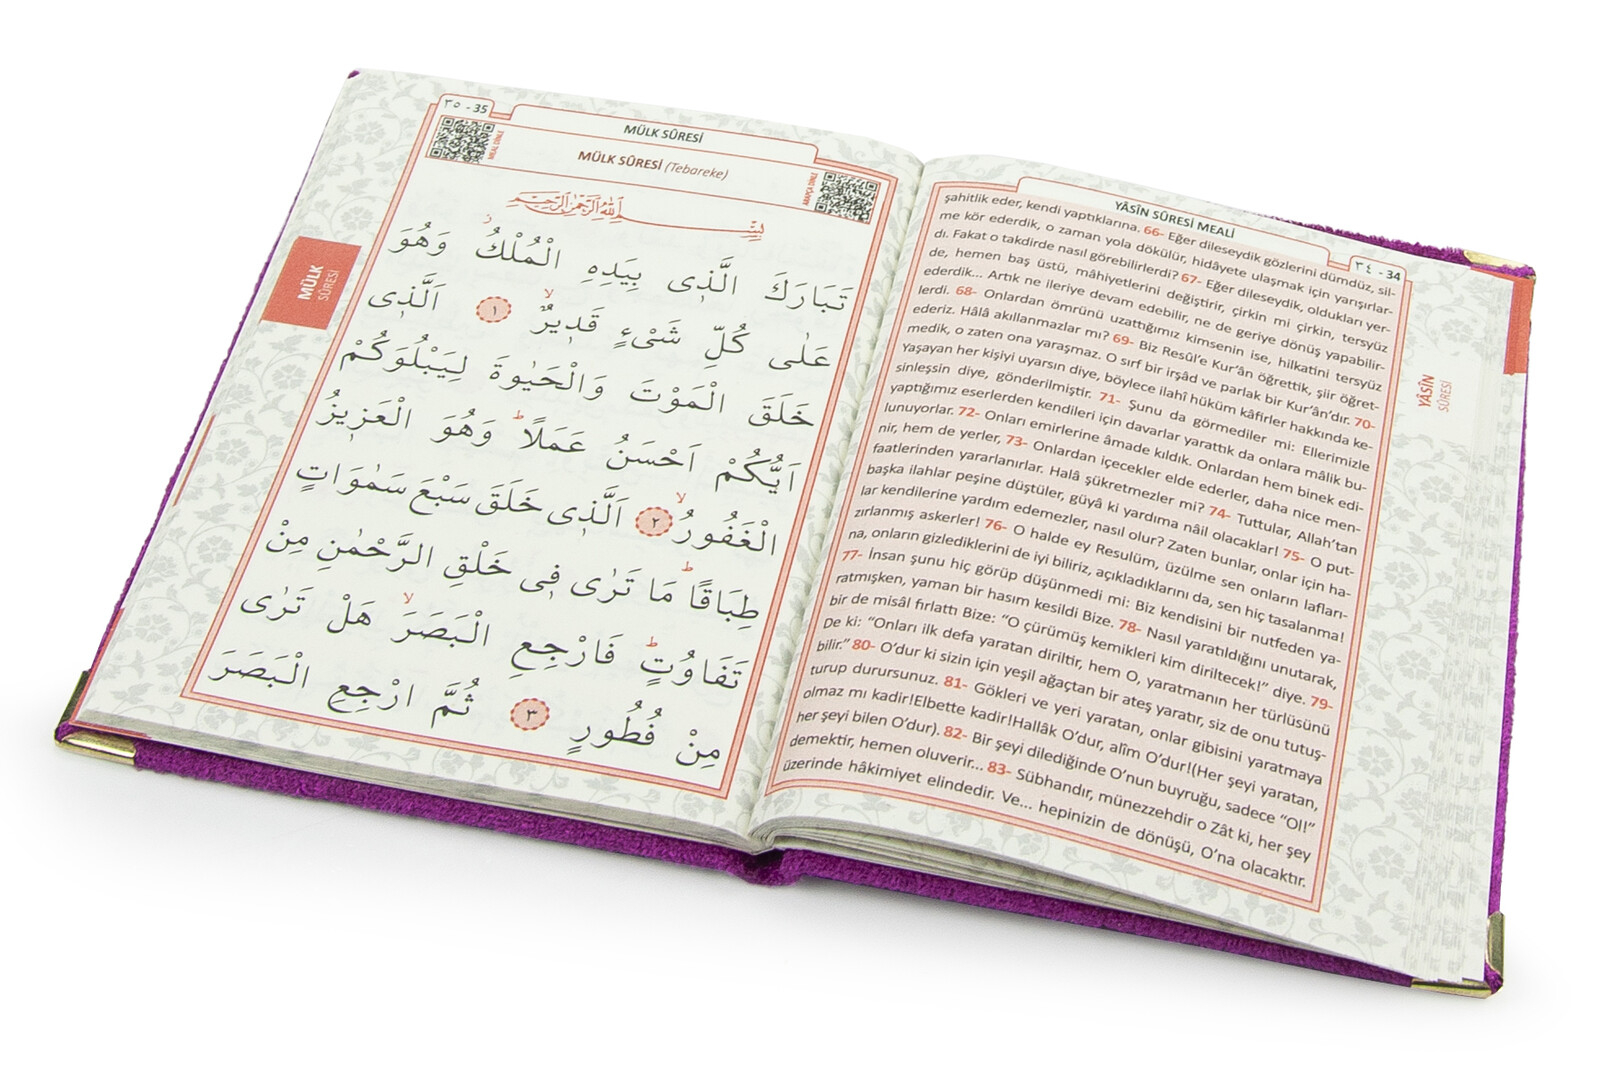 YÂSÎN SÛRESİ MEALİ
٣٤ - 34
şahitlik eder, kendi yaptıklarına. 66- Eğer dileseydik gözlerini dümdüz, sil-
me kör ederdik, o zaman yola dökülür, hidâyete ulaşmak için yarışırlar-
dı. Fakat o takdirde nasıl görebilirlerdi? 67- Eğer dileseydik, oldukları yer-
de, hemen baş üstü, mâhiyetlerini değiştirir, çirkin mi çirkin, tersyüz
ederdik... Artık ne ileriye devam edebilir, ne de geriye dönüş yapabilir-
lerdi. 68- Onlardan ömrünü uzattığımız kimsenin ise, hilkatini tersyüz
ederiz. Hâlâ akıllanmazlar mı? 69- Biz Resûl'e Kur'ân öğrettik, şiir öğret-
medik, o zaten ona yaraşmaz. O sırf bir irşâd ve parlak bir Kur'ân'dır. 70-
Yaşayan her kişiyi uyarsın diye, böylece ilahî hüküm kâfirler hakkında ke-
sinleşsin diye, gönderilmiştir. 71- Şunu da görmediler mi: Ellerimizle
yaptığımız eserlerden kendileri için davarlar yarattık da onlara mâlik bu-
lunuyorlar. 72- Onları emirlerine âmade kıldık. Onlardan hem binek edi-
nir, hem de yerler, 73- Onlardan içecekler elde ederler, daha nice men-
faatlerinden yararlanırlar. Halâ şükretmezler mi? 74- Tuttular, Allah'tan
başka ilahlar peşine düştüler, güyâ ki yardıma nâil olacaklar! 75- O put-
lar kendilerine yardım edemezler, nasıl olur? Zaten bunlar, onlar için ha-
zırlanmış askerler! 76- O halde ey Resulüm, üzülme sen onların lafları-
na, onların gizlediklerini de iyi biliriz, açıkladıklarını da, sen hiç tasalanma!
77- İnsan şunu hiç görüp düşünmedi mi: Biz kendisini bir nutfeden ya-
ratmışken, yaman bir hasım kesildi Bize. 78- Nasıl yaratıldığını unutarak,
bir de misâl fırlattı Bize: "O çürümüş kemikleri kim diriltecek!" diye. 79-
De ki: "Onları ilk defa yaratan diriltir, hem O, yaratmanın her türlüsünü
bilir." 80- O'dur ki sizin için yeşil ağaçtan bir ateş yaratır, siz de onu tutuş-
turup durursunuz. 81- Gökleri ve yeri yaratan, onlar gibisini yaratmaya
olmaz mı kadir!Elbette kadir!Hallâk O'dur, alîm O'dur!(Her şeyi yaratan,
her şeyi bilen O'dur). 82- Bir şeyi dilediğinde O'nun buyruğu, sadece "Ol!"
demektir, hemen oluverir... 83- Sübhandır, münezzehdir o Zât ki, her şey
üzerinde hâkimiyet elindedir. Ve... hepinizin de dönüşü, O'na olacaktır.
YÂSÎN
SÛRESİ
٣٥ - 35
MÜLK SÛRESİ
MEAL DİNLE
MÜLK SÛRESİ (Tebareke)
ARAPÇA DİNLE
بِسْمِ اللّٰهِ الرَّحْمٰنِ الرَّحٖيمِ
تَبَارَكَ الَّذٖى بِيَدِهِ الْمُلْكُ وَهُوَ
عَلٰى كُلِّ شَىْءٍ قَدٖيرٌۙ ١ اَلَّذٖى
خَلَقَ الْمَوْتَ وَالْحَيٰوةَ لِيَبْلُوَكُمْ
اَيُّكُمْ اَحْسَنُ عَمَلًاؕ وَهُوَ الْعَزٖيزُ
الْغَفُورُۙ ٢ اَلَّذٖى خَلَقَ سَبْعَ سَمٰوَاتٍ
طِبَاقًاؕ مَا تَرٰى فٖى خَلْقِ الرَّحْمٰنِ مِنْ
تَفَاوُتٍؕ فَارْجِعِ الْبَصَرَۙ هَلْ تَرٰى
مِنْ فُطُورٍ ٣ ثُمَّ ارْجِعِ الْبَصَرَ
MÜLK
SÛRESİ